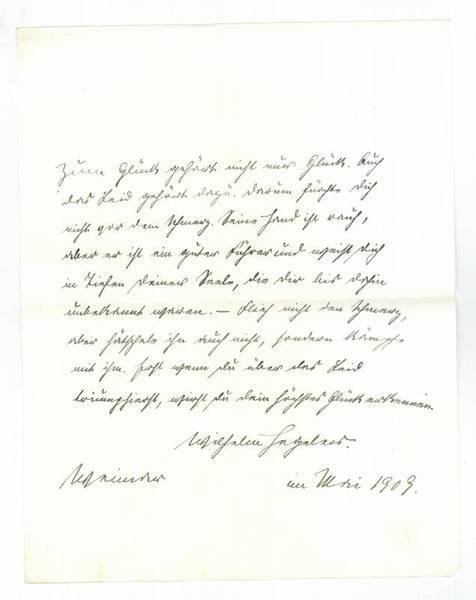 Zum Glück gehört nicht nur Glück. Auch
das Leid gehört dazu. Darum fürchte dich
nicht vor dem Schmerz. Seine Hand ist rauh,
aber er ist ein guter Führer und weist dich
in Tiefen deiner Seele, die dir bis dahin
unbekannt waren. — Flieh nicht den Schmerz,
aber hätschele ihn auch nicht, sondern kämpfe
mit ihm. Erst wenn du über das Leid
triumphierst, wirst du dein höchstes Glück erkennen.
Wilhelm Hegeler.
Weimar im Mai 1909.